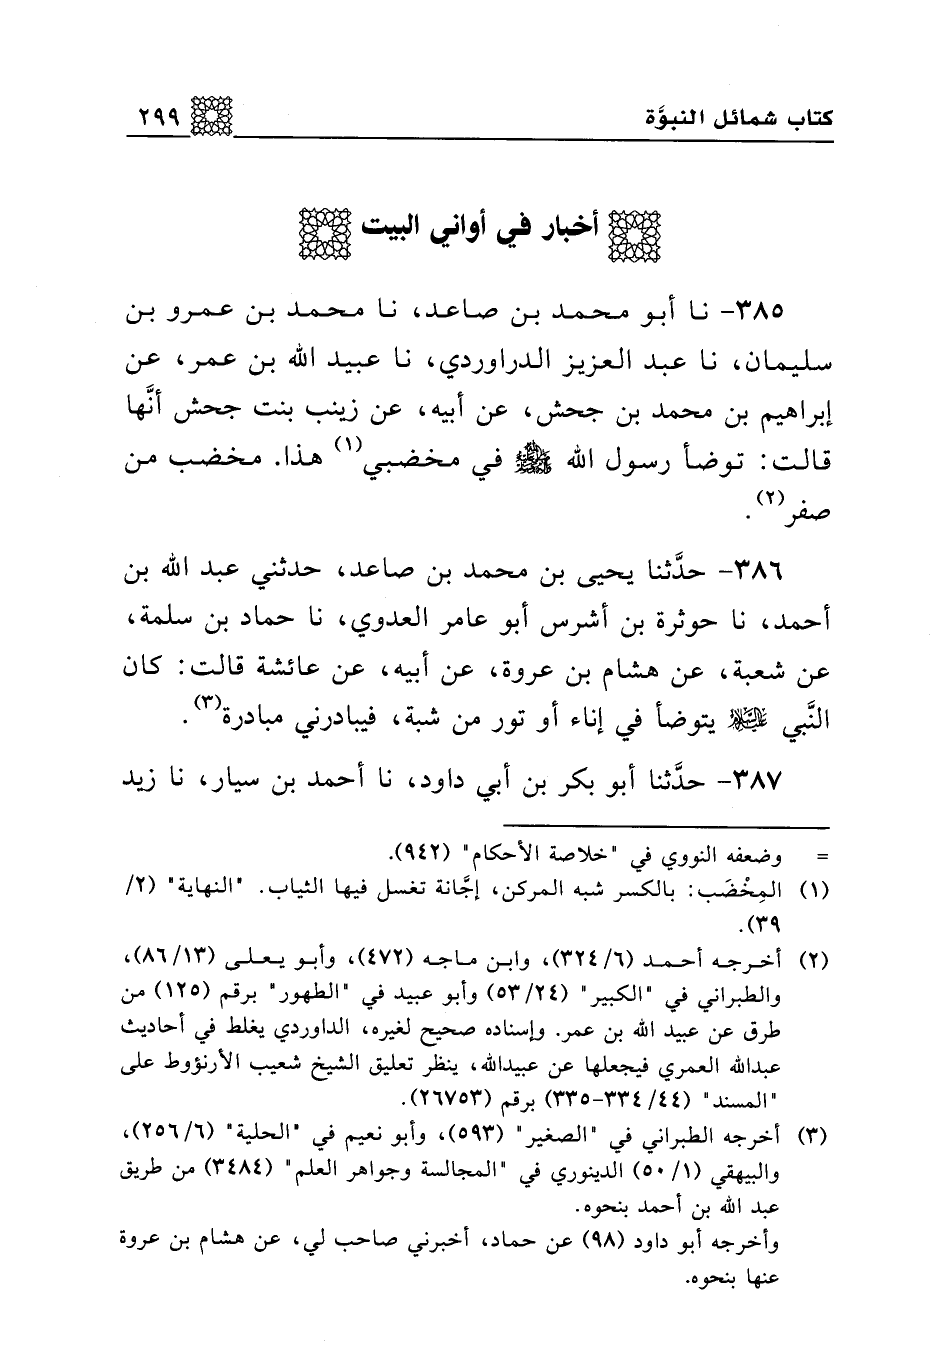 كتاب شمائل النبوَّة ٢٩٩
أخبار في أواني البيت
٣٨٥- نا أبو محمد بن صاعد، نا محمد بن عمرو بن
سليمان، نا عبد العزيز الدراوردي، نا عبيد الله بن عمر، عن
إبراهيم بن محمد بن جحش، عن أبيه، عن زينب بنت جحش أنَّها
قالت: توضأ رسول الله ﷺ في مخضبي(١) هذا. مخضب من
صفر(٢).
٣٨٦- حدَّثنا يحيى بن محمد بن صاعد، حدثني عبد الله بن
أحمد، نا حوثرة بن أشرس أبو عامر العدوي، نا حماد بن سلمة،
عن شعبة، عن هشام بن عروة، عن أبيه، عن عائشة قالت: كان
النَّبي ﷺ يتوضأ في إناء أو تور من شبة، فيبادرني مبادرة(٣).
٣٨٧- حدَّثنا أبو بكر بن أبي داود، نا أحمد بن سيار، نا زيد
= وضعفه النووي في "خلاصة الأحكام" (٩٤٢).
(١) المِخْضَب: بالكسر شبه المركن، إجَّانة تغسل فيها الثياب. "النهاية" (٢/
٣٩).
(٢) أخرجه أحمد (٦/ ٣٢٤)، وابن ماجه (٤٧٢)، وأبو يعلى (١٣/ ٨٦)،
والطبراني في "الكبير" (٢٤/ ٥٣) وأبو عبيد في "الطهور" برقم (١٢٥) من
طرق عن عبيد الله بن عمر. وإسناده صحيح لغيره، الداوردي يغلط في أحاديث
عبدالله العمري فيجعلها عن عبيدالله، ينظر تعليق الشيخ شعيب الأرنؤوط على
"المسند" (٤٤/ ٣٣٤-٣٣٥) برقم (٢٦٧٥٣).
(٣) أخرجه الطبراني في "الصغير" (٥٩٣)، وأبو نعيم في "الحلية" (٦/ ٢٥٦)،
والبيهقي (١/ ٥٠) الدينوري في "المجالسة وجواهر العلم" (٣٤٨٤) من طريق
عبد الله بن أحمد بنحوه.
وأخرجه أبو داود (٩٨) عن حماد، أخبرني صاحب لي، عن هشام بن عروة
عنها بنحوه.